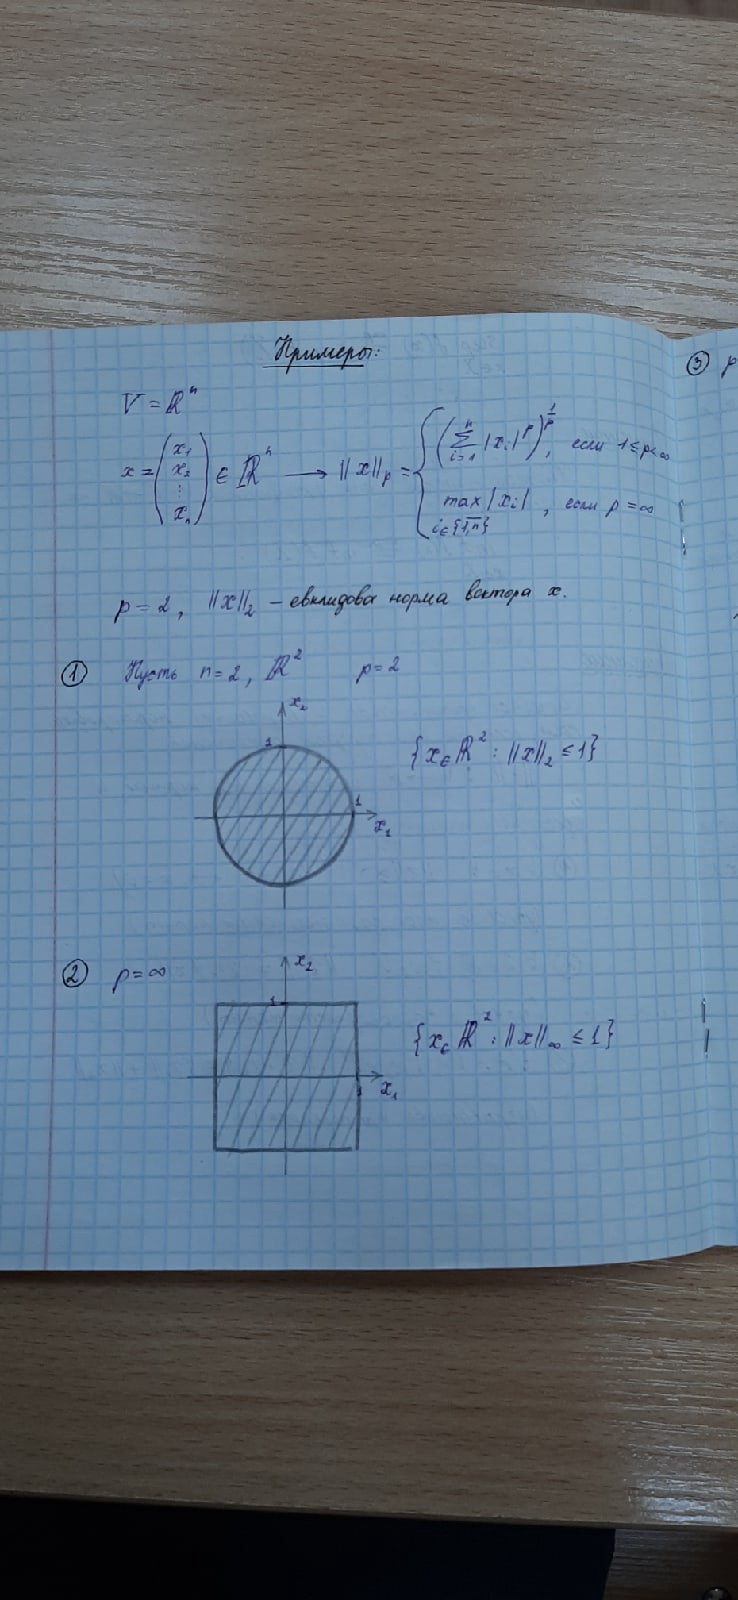 Примеры:
V = ℝⁿ
x = (x₁ x₂ ⋮ xₙ) ∈ ℝⁿ → ||x||ₚ = { (∑ᵢ₌₁ⁿ |xᵢ|ᵖ)^(1/p), если 1 ≤ p < ∞
max_{i∈{1,n}} |xᵢ|, если p = ∞
p = 2, ||x||₂ – евклидова норма вектора x.
① Пусть n = 2, ℝ² p = 2
x₂
1
{x ∈ ℝ² : ||x||₂ ≤ 1}
1
x₁
② p = ∞
x₂
1
{x ∈ ℝ² : ||x||∞ ≤ 1}
1
x₁
③ p